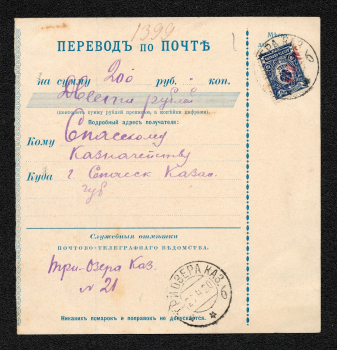 1399
ПЕРЕВОДЪ по ПОЧТѢ
на сумму 200 руб. коп.
Двести рублей
Подробный адресъ получателя:
Кому Спасскому
Казначейству
Куда г Спасск Казан.
губ
Служебныя отмѣтки
ПОЧТОВО-ТЕЛЕГРАФНАГО ВѢДОМСТВА.
Три-Озера Каз.
N 21
ТРИ ОЗЕРА КАЗ.
Никакихъ помарокъ и поправокъ не допускается.